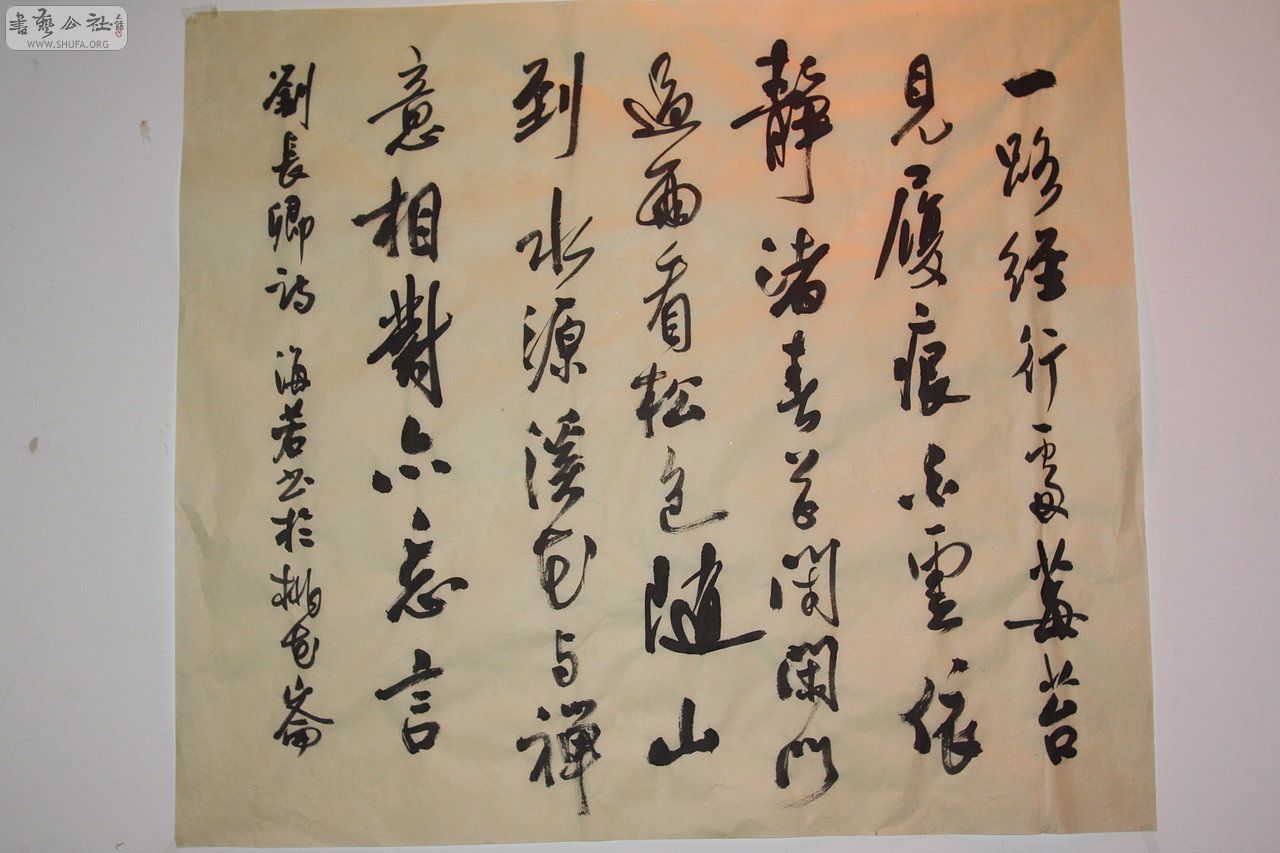 書藝公社
WWW.SHUFA.ORG
一路經行處莓苔
見履痕白雲依
靜渚春草閉閑門
過雨看松色隨山
到水源溪花与禪
意相對亦忘言
劉長卿詩 海若书於桃花崙